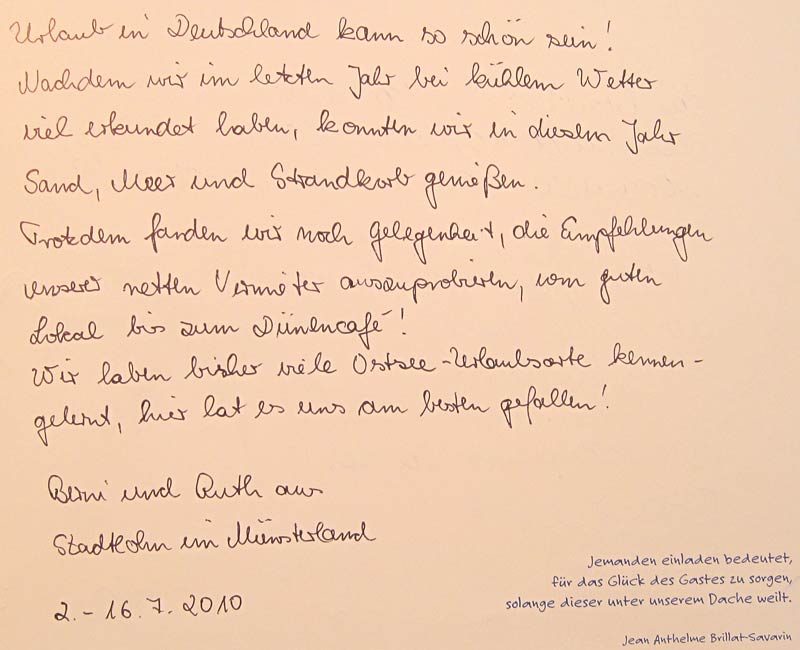 Urlaub in Deutschland kann so schön sein!
Nachdem wir im letzten Jahr bei kühlem Wetter
viel erkundet haben, konnten wir in diesem Jahr
Sand, Meer und Strandkorb genießen.
Trotzdem fanden wir noch Gelegenheit, die Empfehlungen
unserer netten Vermieter auszuprobieren, vom guten
Lokal bis zum Dünencafé!
Wir haben bisher viele Ostsee-Urlaubsorte kennen-
gelernt, hier hat es uns am besten gefallen!
Berni und Ruth aus
Stadtlohn im Münsterland
2.-16.7.2010
Jemanden einladen bedeutet,
für das Glück des Gastes zu sorgen,
solange dieser unter unserem Dache weilt.
Jean Anthelme Brillat-Savarin